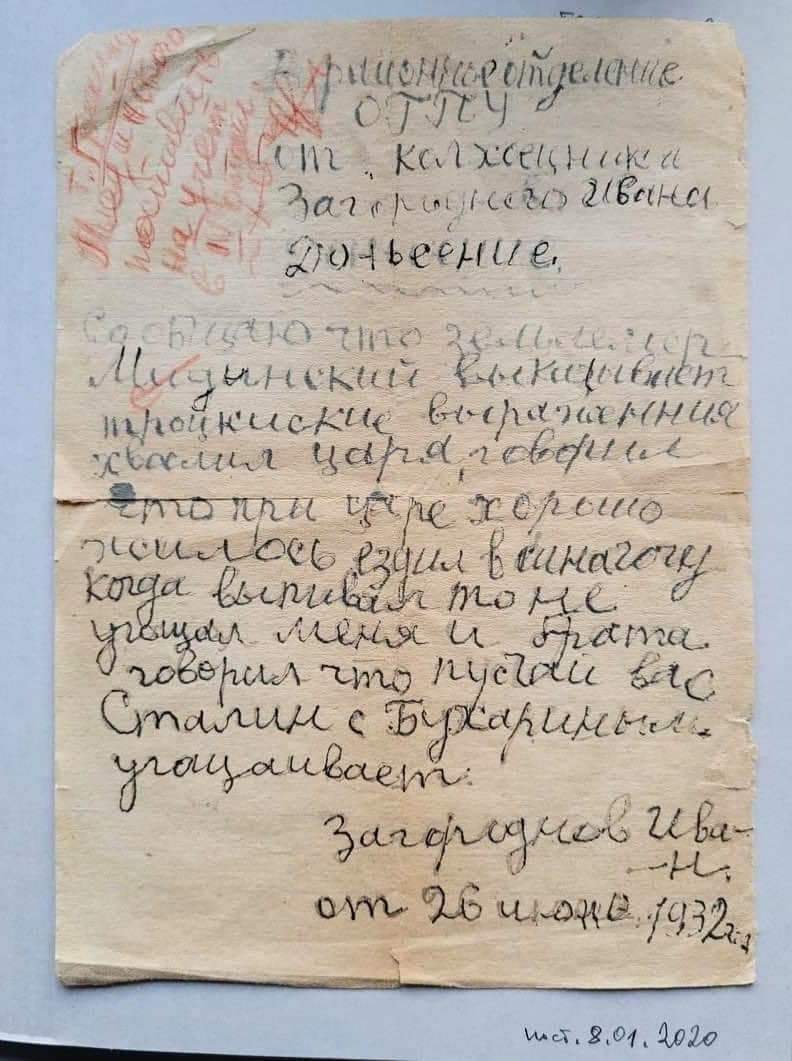 В районное отделение
ОГПУ
от колхозника
Загороднего Ивана
Доньесение.
Сообщаю что землемер
Мидынский выкидывает
троцкиские выражения
хвалил царя, говорил
что при царе хорошо
жилось ездил в синагогу
когда выпивал то не
угощал меня и брата
говорил что пускай вас
Сталин с Бухариным
угащаивает.
Загороднов Ива-
-н.
от 26 июня 1932
поставить
на учет
в
8.01.2020